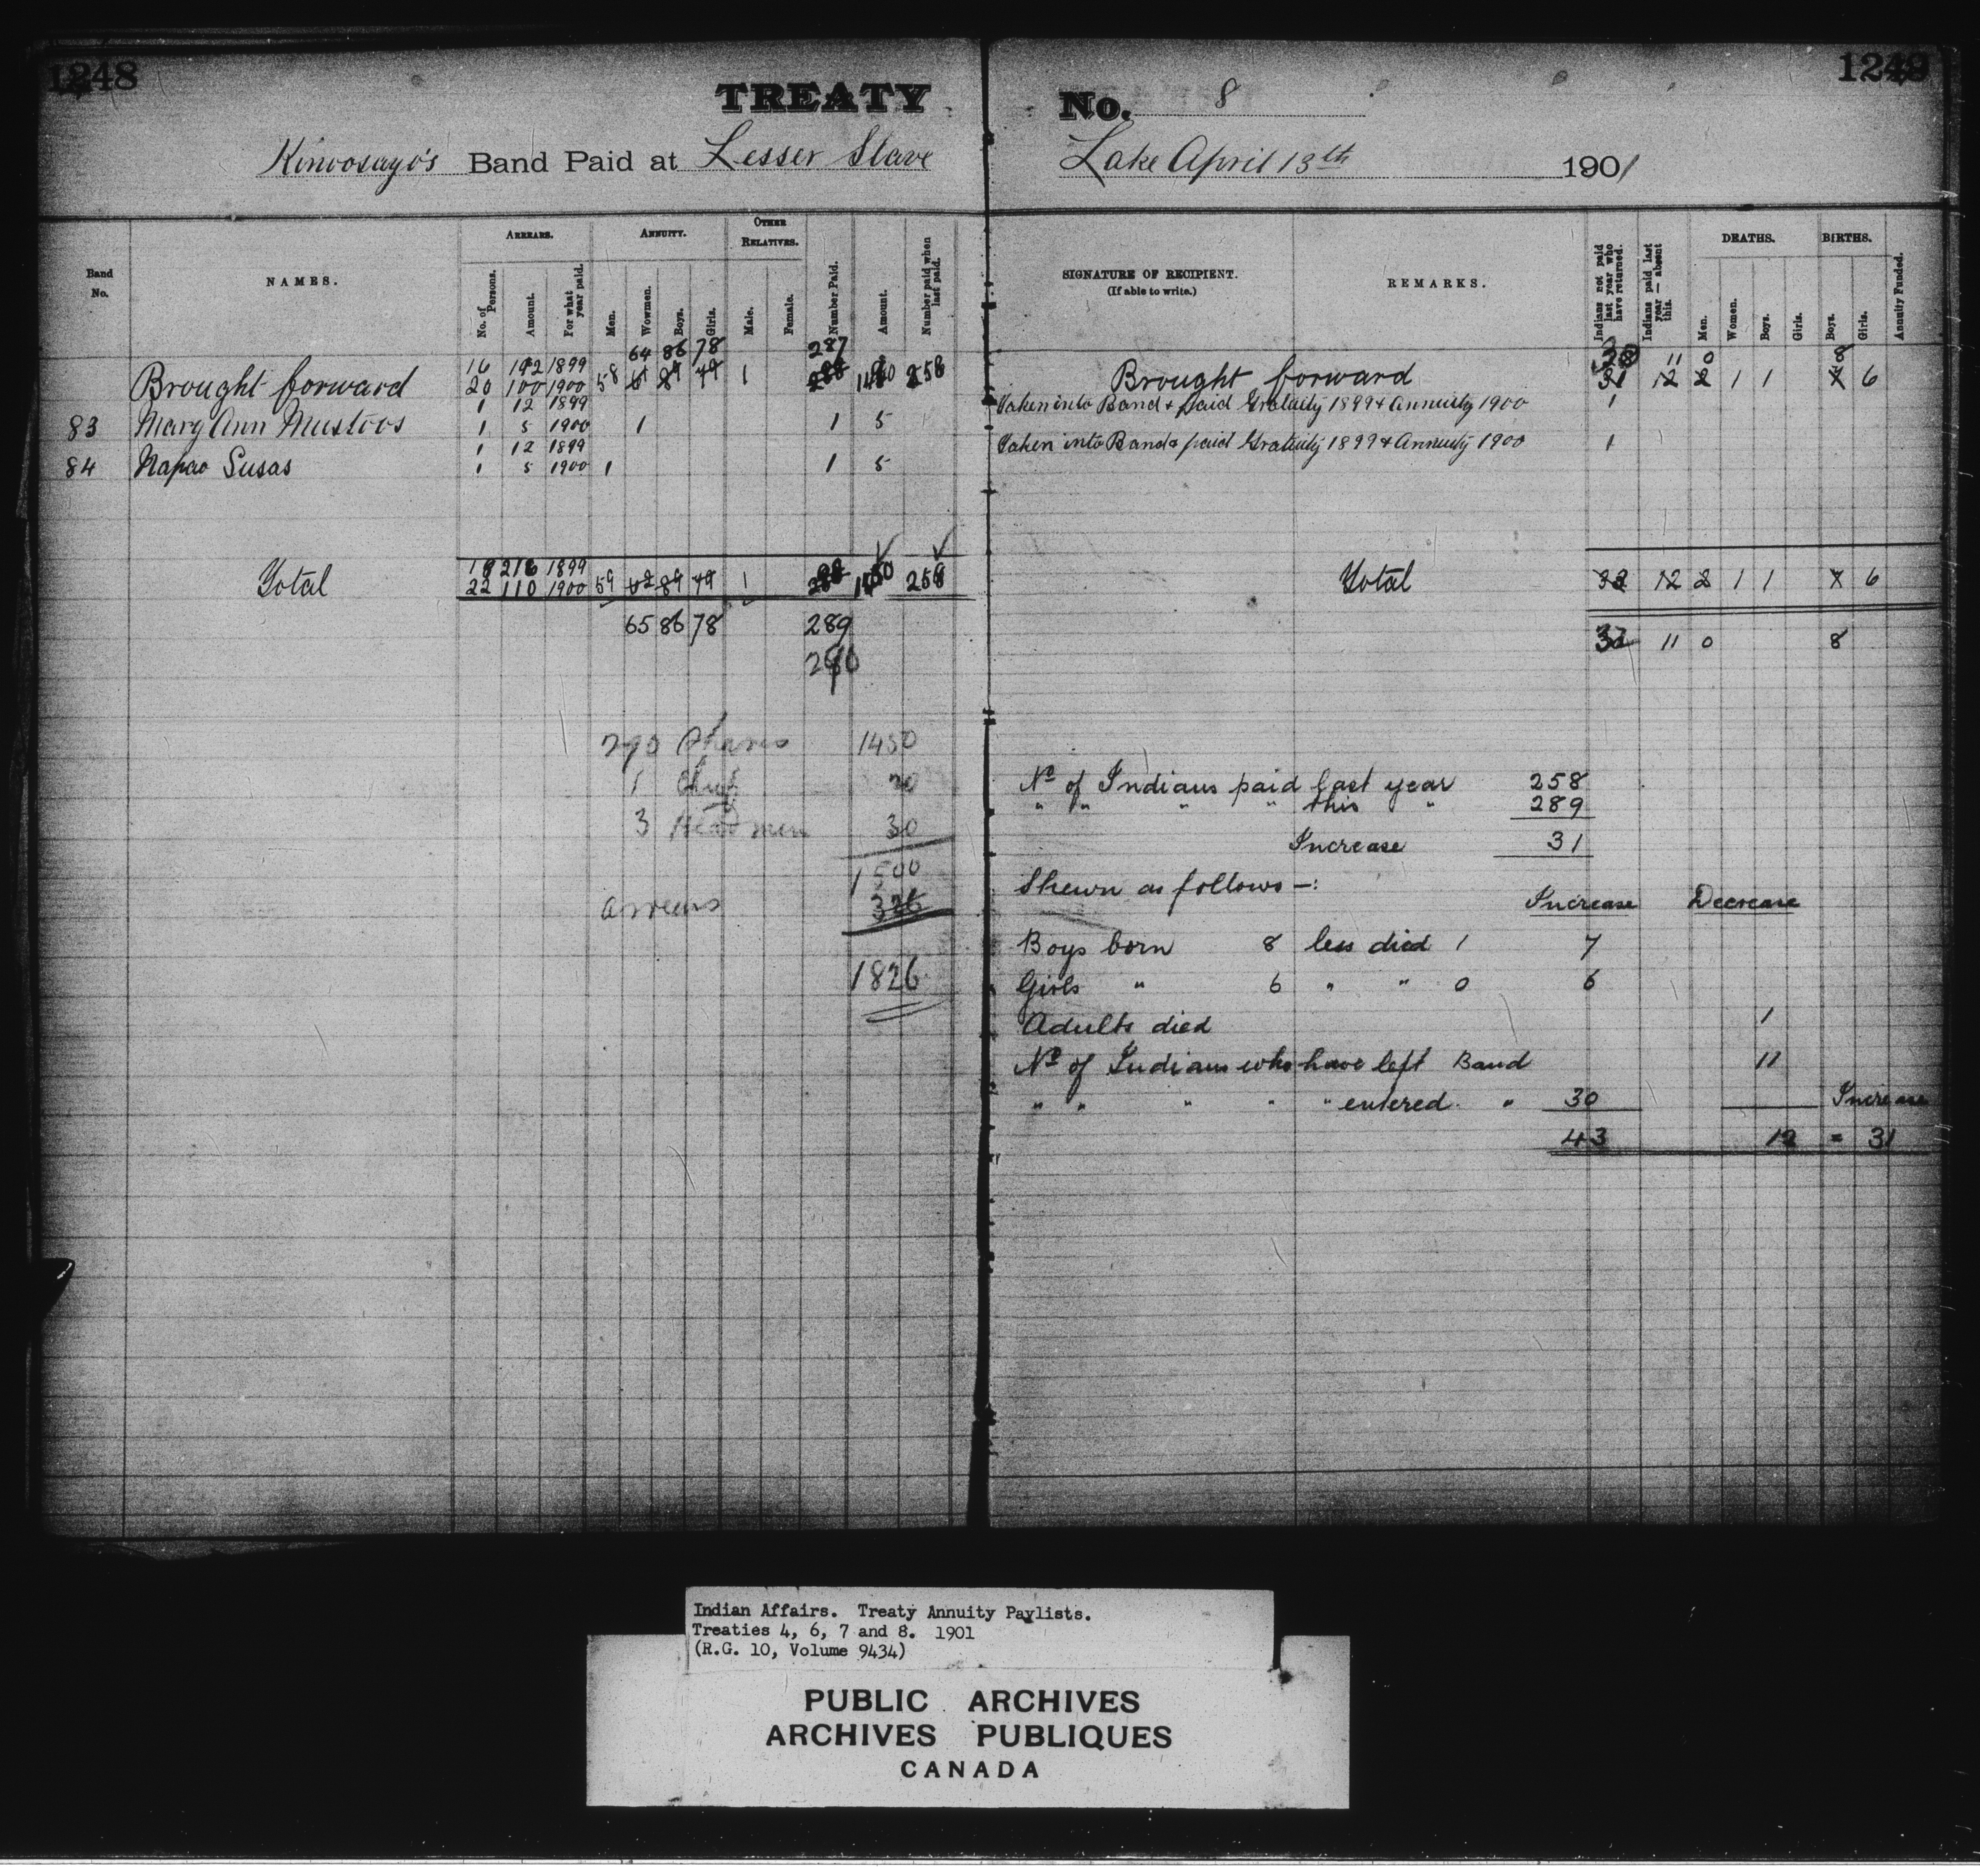 1248
1249
TREATY No. 8
Kinoosayo's Band Paid at Lesser Slave Lake April 13th 1901
Band No.
NAMES.
ARREARS.
No. of Persons.
Amount.
For what year paid.
ANNUITY.
Men.
Wowmen.
Boys.
Girls.
OTHER RELATIVES.
Male.
Female.
Number Paid.
Amount.
Number paid when last paid.
SIGNATURE OF RECIPIENT.
(If able to write.)
REMARKS.
Indians not paid last year who have returned.
Indians paid last year — absent this.
DEATHS.
Men.
Women.
Boys.
Girls.
BIRTHS.
Boys.
Girls.
Annuity Funded.
16 192 1899 64 86 78 287 11 0 8
Brought forward 20 100 1900 58 1 258 Brought forward 12 2 1 1 6
1 12 1899 Taken into Band & paid Gratuity 1899 & Annuity 1900 1
83 Mary Ann Mustoos 1 5 1900 1 1 5
1 12 1899 Taken into Band & paid Gratuity 1899 & Annuity 1900 1
84 Napao Susas 1 5 1900 1 1 5
18 216 1899
Total 22 110 1900 59 62 89 79 1 258 Total 32 12 2 1 1 6
65 86 78 289 32 11 0 8
290
290 Shares 1450
1 Chief 20
3 Headmen 30
1500
arrears 326
1826
No of Indians paid last year 258
" " " " this " 289
Increase 31
Shewn as follows —:
Increase Decrease
Boys born 8 less died 1 7
Girls " 6 " " 0 6
Adults died 1
No of Indians who have left Band 11
" " " " " entered " 30 Increase
43 12 = 31
Indian Affairs. Treaty Annuity Paylists.
Treaties 4, 6, 7 and 8. 1901
(R.G. 10, Volume 9434)
PUBLIC ARCHIVES
ARCHIVES PUBLIQUES
CANADA